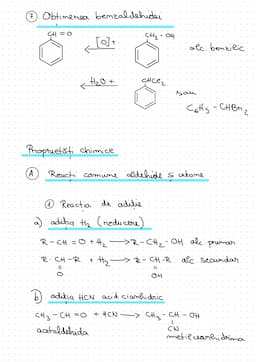 ⑦ Obtinerea benzaldehidei
CH = O
[O]+
CH₂ - OH
alc. benzilic
H₂O +
CHCl₂
sau
C₆H₅ - CHBr₂
Proprietăti chimice
Ⓐ Reacti comune aldehide si cetone
① Reactia de aditie
a) aditia H₂ (reducere)
R - CH = O + H₂ → R - CH₂ - OH alc primar
R - CH - R + H₂ → R - CH - R alc secundar
O
OH
b) aditia HCN acid cianhidric
CH₃ - CH = O + HCN → CH₃ - CH - OH
CN
acetaldehida
metilcianhidrina